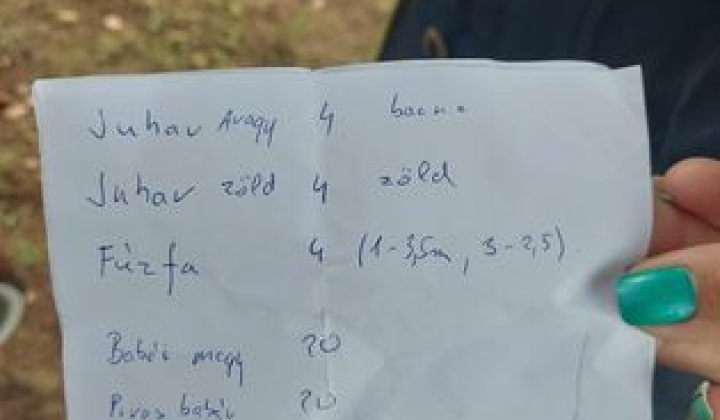 Juhar Avagy 4 barna
Juhar zöld 4 zöld
Fűzfa 4 (1-3,5m, 3-2,5)
Babér nagy 20
Piros babér 20